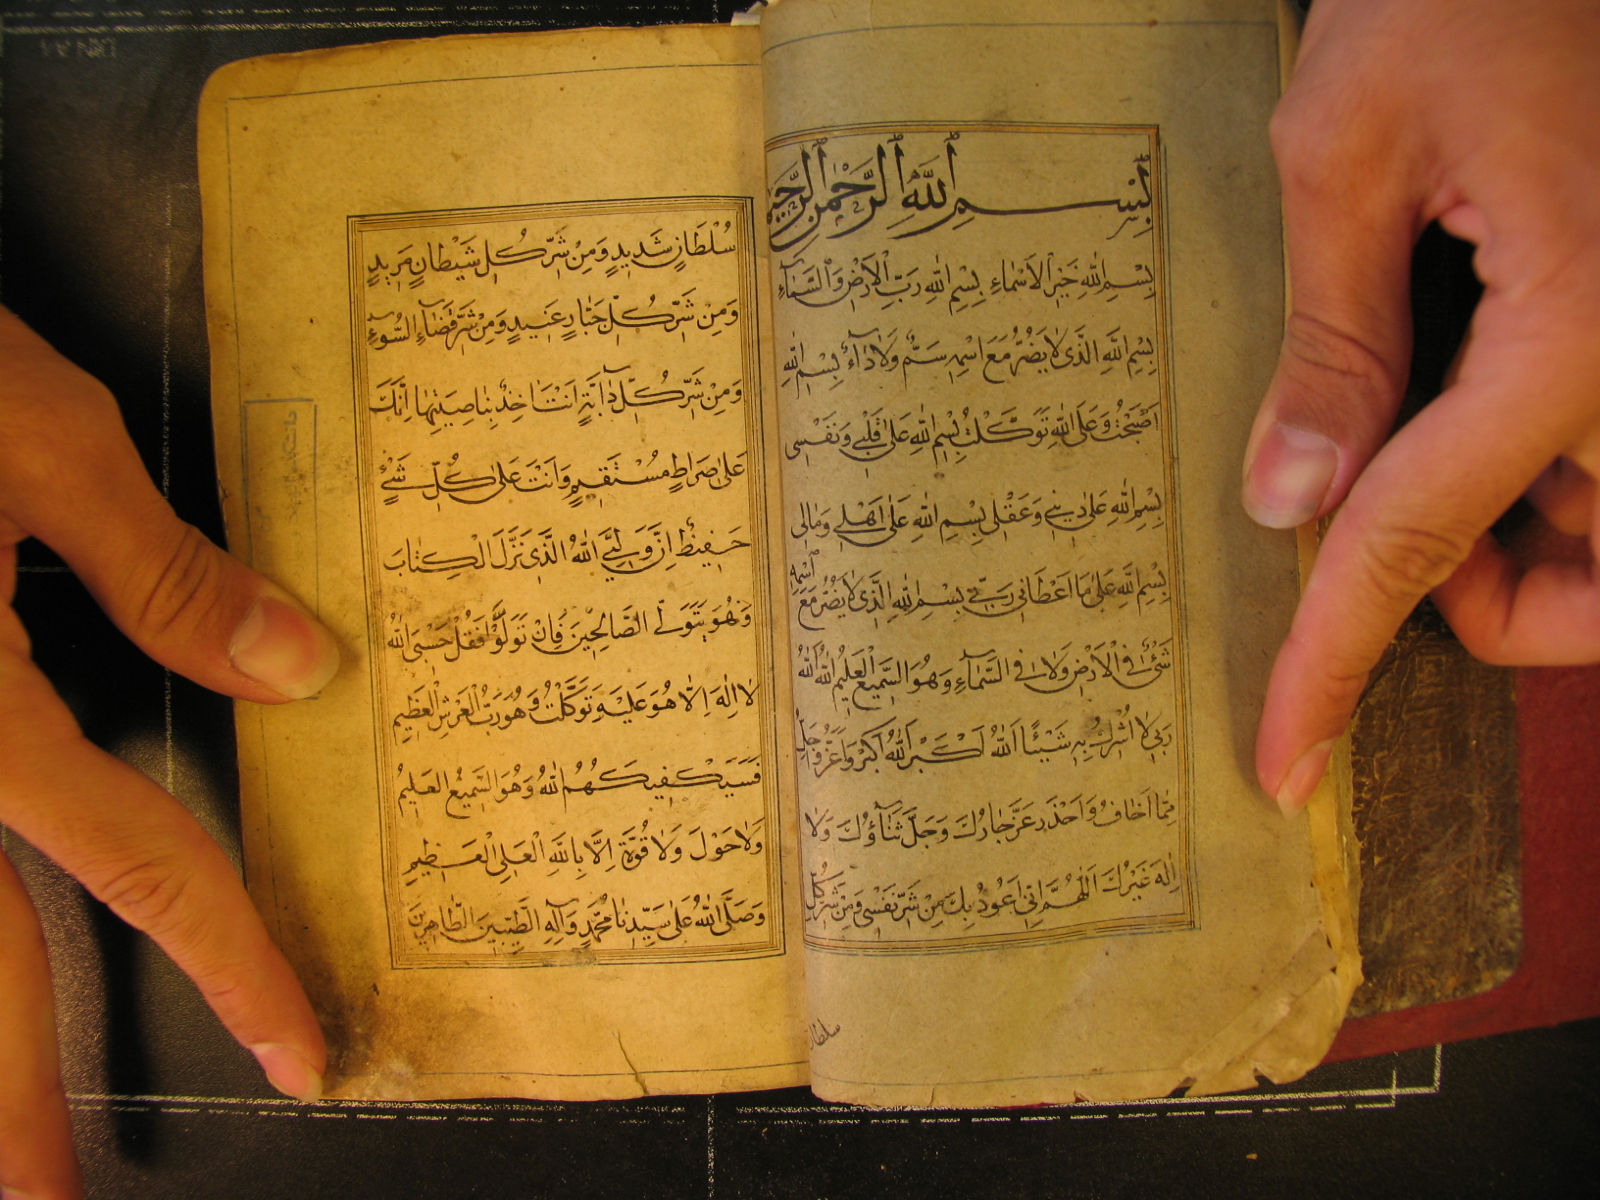 بِسْمِ اللهِ الرَّحْمٰنِ الرَّحِيمِ
بِسْمِ اللهِ خَيْرِ الْاَسْمَاءِ بِسْمِ اللهِ رَبِّ الْاَرْضِ وَالسَّمَاءِ
بِسْمِ اللهِ الَّذِى لَا يَضُرُّ مَعَ اسْمِهِ سَمٌّ وَلَا دَاءٌ بِسْمِ اللهِ
اَصْبَحْتُ وَعَلَى اللهِ تَوَكَّلْتُ بِسْمِ اللهِ عَلٰى قَلْبِى وَنَفْسِى
بِسْمِ اللهِ عَلٰى دِينِى وَعَقْلِى بِسْمِ اللهِ عَلٰى اَهْلِى وَمَالِى
بِسْمِ اللهِ عَلٰى مَا اَعْطَانِى رَبِّى بِسْمِ اللهِ الَّذِى لَا يَضُرُّ مَعَ اسْمِهِ
شَىْءٌ فِى الْاَرْضِ وَلَا فِى السَّمَاءِ وَهُوَ السَّمِيعُ الْعَلِيمُ اَللهُ اَللهُ
رَبِّى لَا اُشْرِكُ بِهِ شَيْئًا اَللهُ اَكْبَرُ اَللهُ اَكْبَرُ وَاَعَزُّ وَاَجَلُّ
مِمَّا اَخَافُ وَاَحْذَرُ عَزَّ جَارُكَ وَجَلَّ ثَنَاؤُكَ وَلَا
اِلٰهَ غَيْرُكَ اَللّٰهُمَّ اِنِّى اَعُوذُ بِكَ مِنْ شَرِّ نَفْسِى وَمِنْ شَرِّ كُلِّ
سلطان
سُلْطَانٍ شَدِيدٍ وَمِنْ شَرِّ كُلِّ شَيْطَانٍ مَرِيدٍ
وَمِنْ شَرِّ كُلِّ جَبَّارٍ عَنِيدٍ وَمِنْ شَرِّ قَضَاءِ السُّوءِ
وَمِنْ شَرِّ كُلِّ دَابَّةٍ اَنْتَ اٰخِذٌ بِنَاصِيَتِهَا اِنَّكَ
عَلٰى صِرَاطٍ مُسْتَقِيمٍ وَاَنْتَ عَلٰى كُلِّ شَىْءٍ
حَفِيظٌ اِنَّ وَلِيِّىَ اللهُ الَّذِى نَزَّلَ الْكِتَابَ
وَهُوَ يَتَوَلَّى الصَّالِحِينَ فَاِنْ تَوَلَّوْا فَقُلْ حَسْبِىَ اللهُ
لَا اِلٰهَ اِلَّا هُوَ عَلَيْهِ تَوَكَّلْتُ وَهُوَ رَبُّ الْعَرْشِ الْعَظِيمِ
فَسَيَكْفِيكَهُمُ اللهُ وَهُوَ السَّمِيعُ الْعَلِيمُ
وَلَا حَوْلَ وَلَا قُوَّةَ اِلَّا بِاللهِ الْعَلِىِّ الْعَظِيمِ
وَصَلَّى اللهُ عَلٰى سَيِّدِنَا مُحَمَّدٍ وَآلِهِ الطَّيِّبِينَ الطَّاهِرِينَ